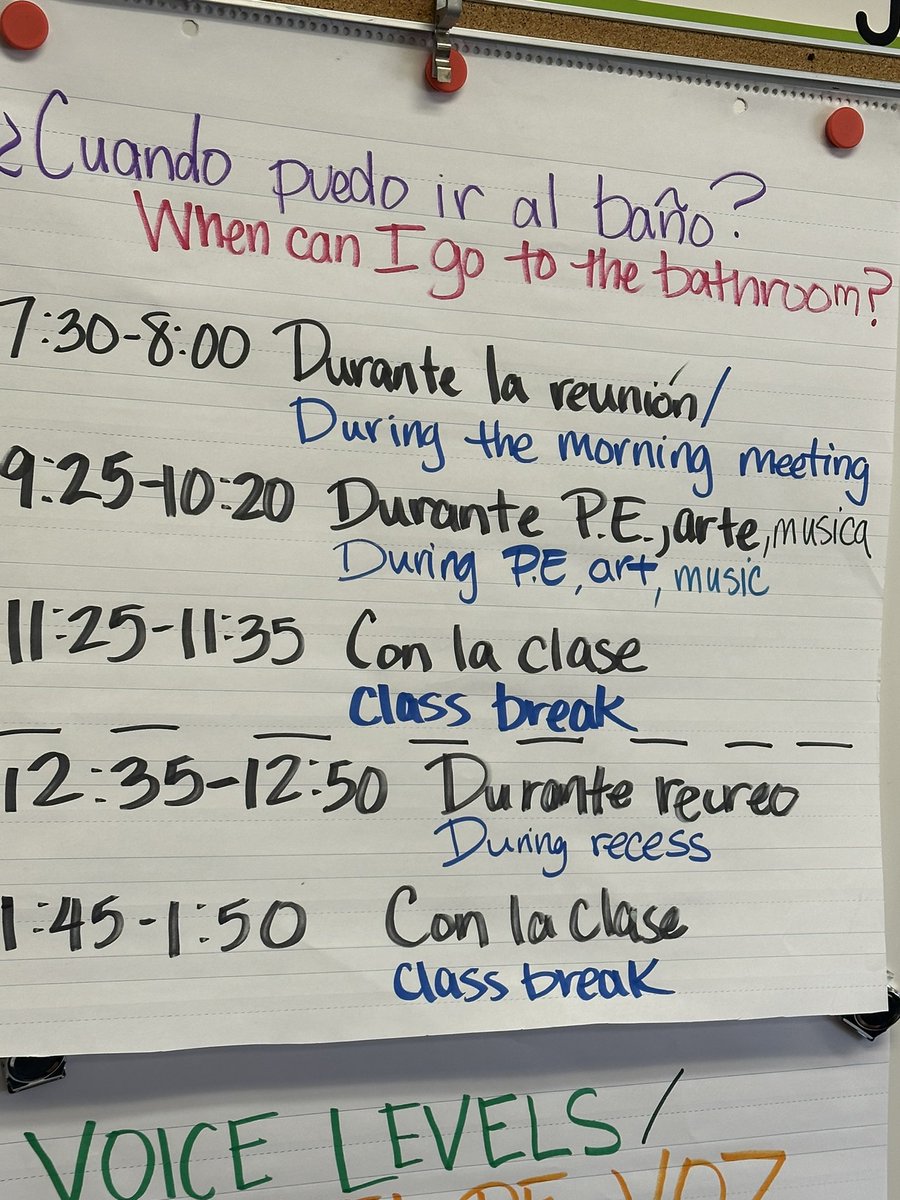 ¿Cuando puedo ir al baño?
When can I go to the bathroom?
7:30-8:00 Durante la reunión/
During the morning meeting
9:25-10:20 Durante P.E., arte, musica
During P.E, art, music
11:25-11:35 Con la clase
Class break
12:35-12:50 Durante recreo
During recess
1:45-1:50 Con la clase
Class break
VOICE LEVELS/
DE VOZ